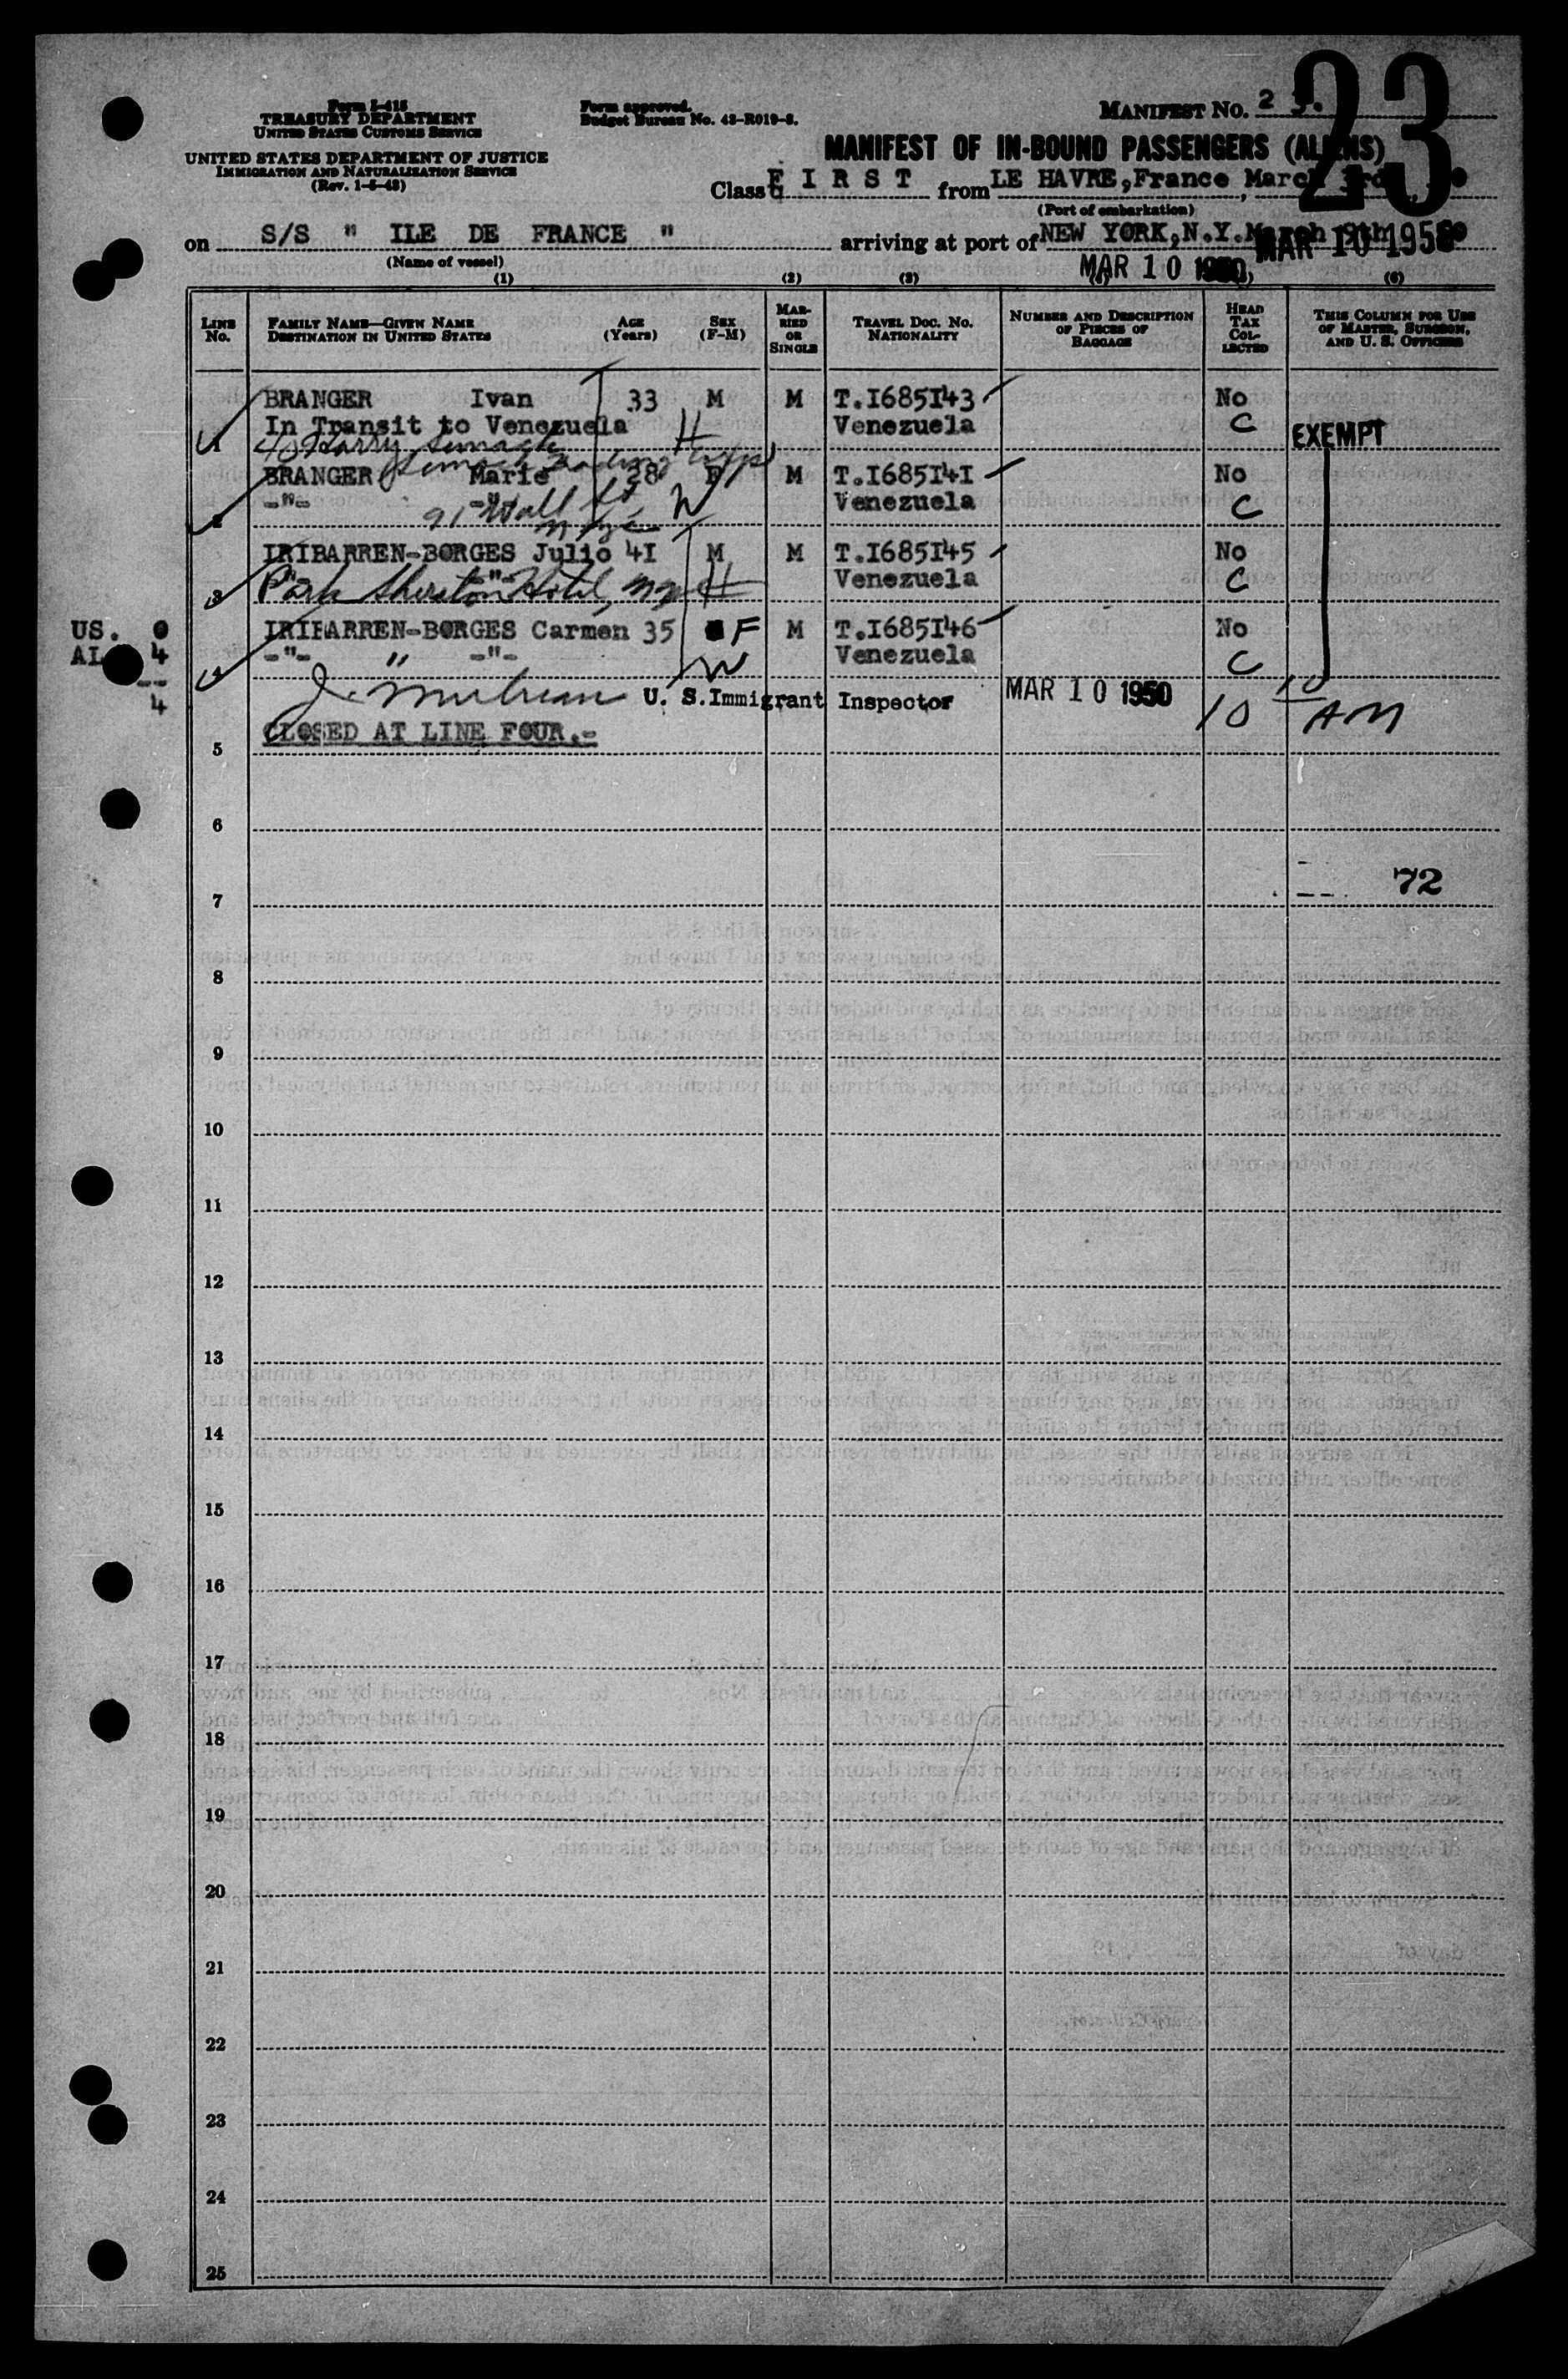 23
Form I-415
TREASURY DEPARTMENT
UNITED STATES CUSTOMS SERVICE
UNITED STATES DEPARTMENT OF JUSTICE
IMMIGRATION AND NATURALIZATION SERVICE
(Rev. 1-5-48)
Form approved.
Budget Bureau No. 43-R019-3.
MANIFEST No. 2 3.
MANIFEST OF IN-BOUND PASSENGERS (ALIENS)
Class F I R S T from LE HAVRE, France March 3rd
(Port of embarkation)
on S/S " ILE DE FRANCE " arriving at port of NEW YORK, N.Y. March 9th
(Name of vessel)
MAR 10 1950
MAR 10 1950
(1) (2) (3) (6)
LINE No.
FAMILY NAME—GIVEN NAME
DESTINATION IN UNITED STATES
AGE (Years)
SEX (F-M)
MARRIED OR SINGLE
TRAVEL DOC. No.
NATIONALITY
NUMBER AND DESCRIPTION OF PIECES OF BAGGAGE
HEAD TAX COLLECTED
THIS COLUMN FOR USE OF MASTER, SURGEON, AND U. S. OFFICERS
BRANGER Ivan 33 M M T.I685I43 No
1 In Transit to Venezuela H Venezuela C EXEMPT
c/o Harry
Trading
BRANGER Marie 28 F M T.I685I41 No
2 -"- -"- W Venezuela C
91 Wall St
IRIBARREN-BORGES Julio 41 M M T.I685I45 No
3 -"- -"- H Venezuela C
Park Sheraton Hotel, NY
IRIBARREN-BORGES Carmen 35 F M T.I685I46 No
4 -"- " -"- W Venezuela C
US. 0
AL 4
--
4
J. U. S. Immigrant Inspector MAR 10 1950 10 10 AM
CLOSED AT LINE FOUR.-
5
6
7 72
8
9
10
11
12
13
14
15
16
17
18
19
20
21
22
23
24
25